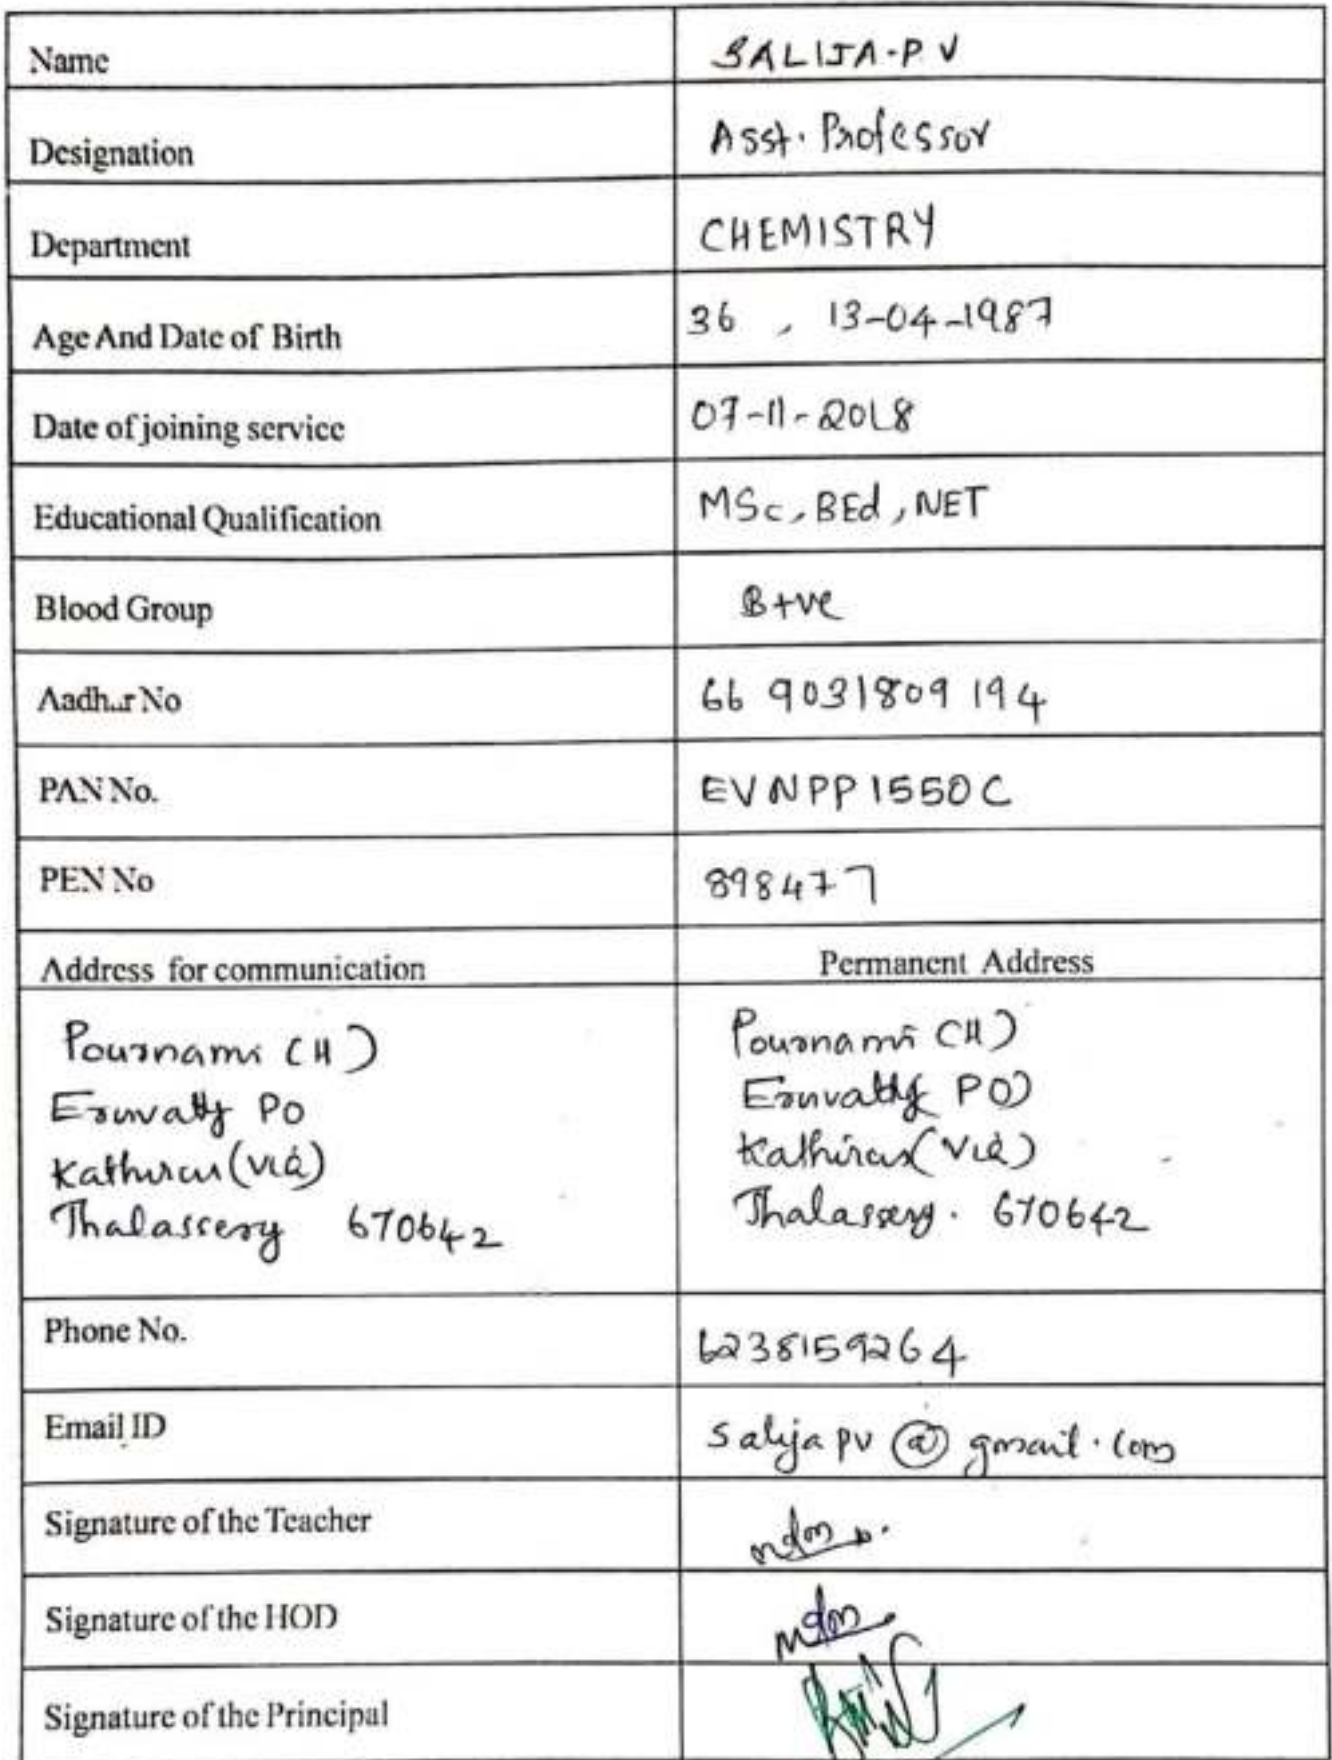 Name SALIJA·P V
Designation Asst. Professor
Department CHEMISTRY
Age And Date of Birth 36 , 13-04-1987
Date of joining service 07-11-2018
Educational Qualification MSc, BEd, NET
Blood Group B+ve
Aadh..r No 66 9031809 194
PAN No. EVNPP1550C
PEN No 898477
Address for communication Permanent Address
Pournami (H)
Eruvatty PO
Kathirur (Via)
Thalassery 670642
Pournami (H)
Eruvatty PO)
Kathirur (Via)
Thalassery. 670642
Phone No. 6238159264
Email ID salijapv@gmail.com
Signature of the Teacher
Signature of the HOD
Signature of the Principal